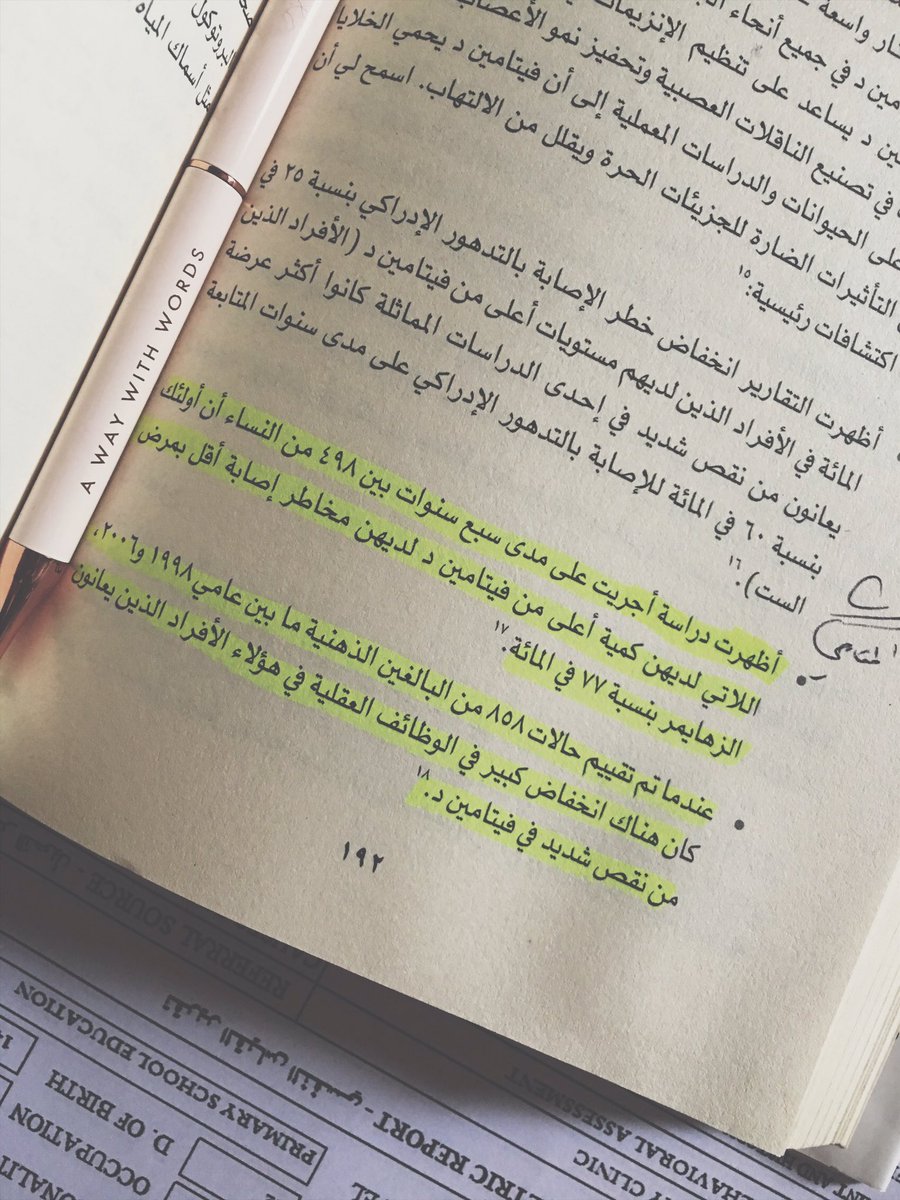 البروتوكول
مثل أسماك المياه
A WAY WITH WORDS
في جميع أنحاء
د يساعد على تنظيم الإنزيمات
في تصنيع الناقلات العصبية وتحفيز نمو الأعصاب
على الحيوانات والدراسات المعملية إلى أن فيتامين د يحمي الخلايا
التأثيرات الضارة للجزيئات الحرة ويقلل من الالتهاب. اسمح لي أن
اكتشافات رئيسية:١٥
أظهرت التقارير انخفاض خطر الإصابة بالتدهور الإدراكي بنسبة ٢٥ في
المائة في الأفراد الذين لديهم مستويات أعلى من فيتامين د (الأفراد الذين
يعانون من نقص شديد في إحدى الدراسات المماثلة كانوا أكثر عرضة
بنسبة ٦٠ في المائة للإصابة بالتدهور الإدراكي على مدى سنوات المتابعة
الست).١٦
• أظهرت دراسة أجريت على مدى سبع سنوات بين ٤٩٨ من النساء أن أولئك
اللاتي لديهن كمية أعلى من فيتامين د لديهن مخاطر إصابة أقل بمرض
الزهايمر بنسبة ٧٧ في المائة.١٧
• عندما تم تقييم حالات ٨٥٨ من البالغين الذهنية ما بين عامي ١٩٩٨ و٢٠٠٦،
كان هناك انخفاض كبير في الوظائف العقلية في هؤلاء الأفراد الذين يعانون
من نقص شديد في فيتامين د.١٨
١٩٢
REFERRAL SOURCE
تقرير القياس النفسي
PRIMARY SCHOOL EDUCATION
D. OF BIRTH
OCCUPATION
REPORT
CLINIC
ASSESSMENT